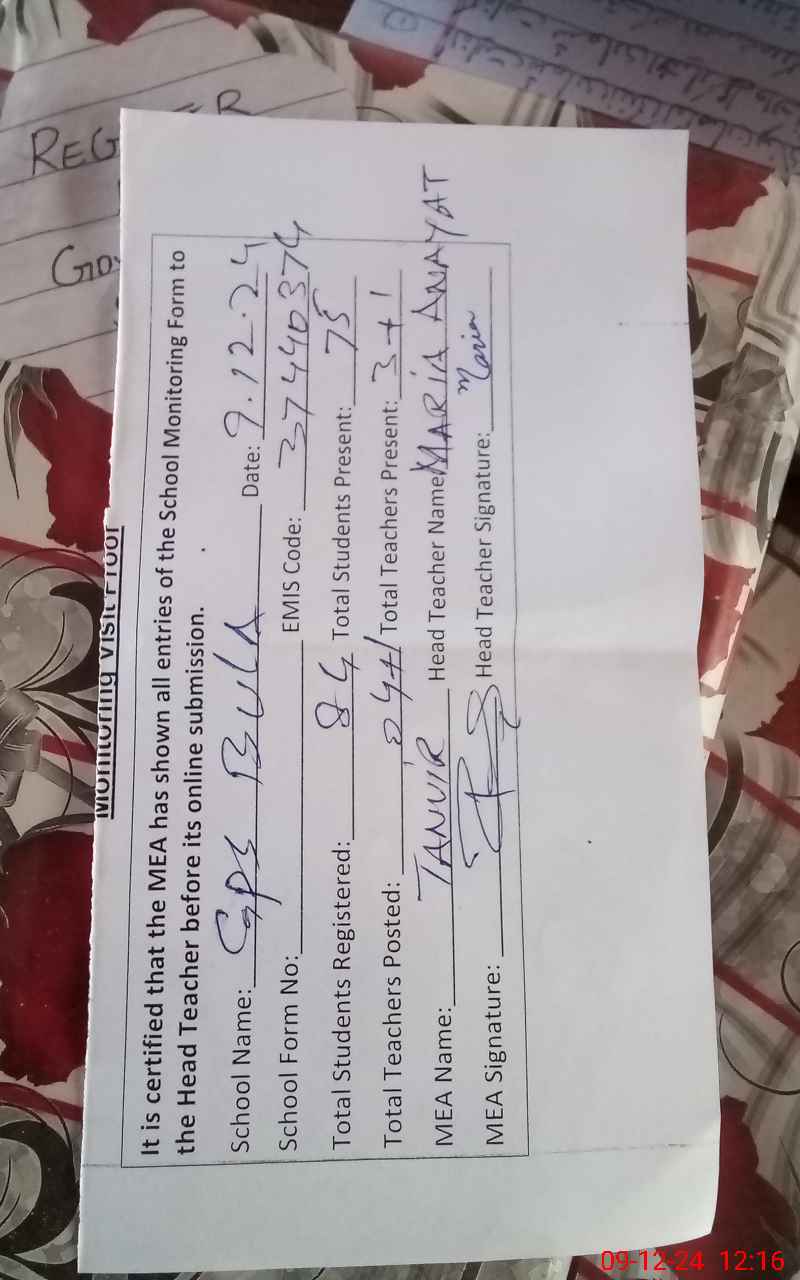 REG   ER
GO
Monitoring Visit Proof
It is certified that the MEA has shown all entries of the School Monitoring Form to
the Head Teacher before its online submission.
School Name: GPS BULA Date: 9.12.24
School Form No: EMIS Code: 37440374
Total Students Registered: 84 Total Students Present: 75
Total Teachers Posted: 04+1 Total Teachers Present: 3+1
MEA Name: TANVIR Head Teacher Name MARIA ANAYAT
MEA Signature: Head Teacher Signature: Maria
09-12-24 12:16